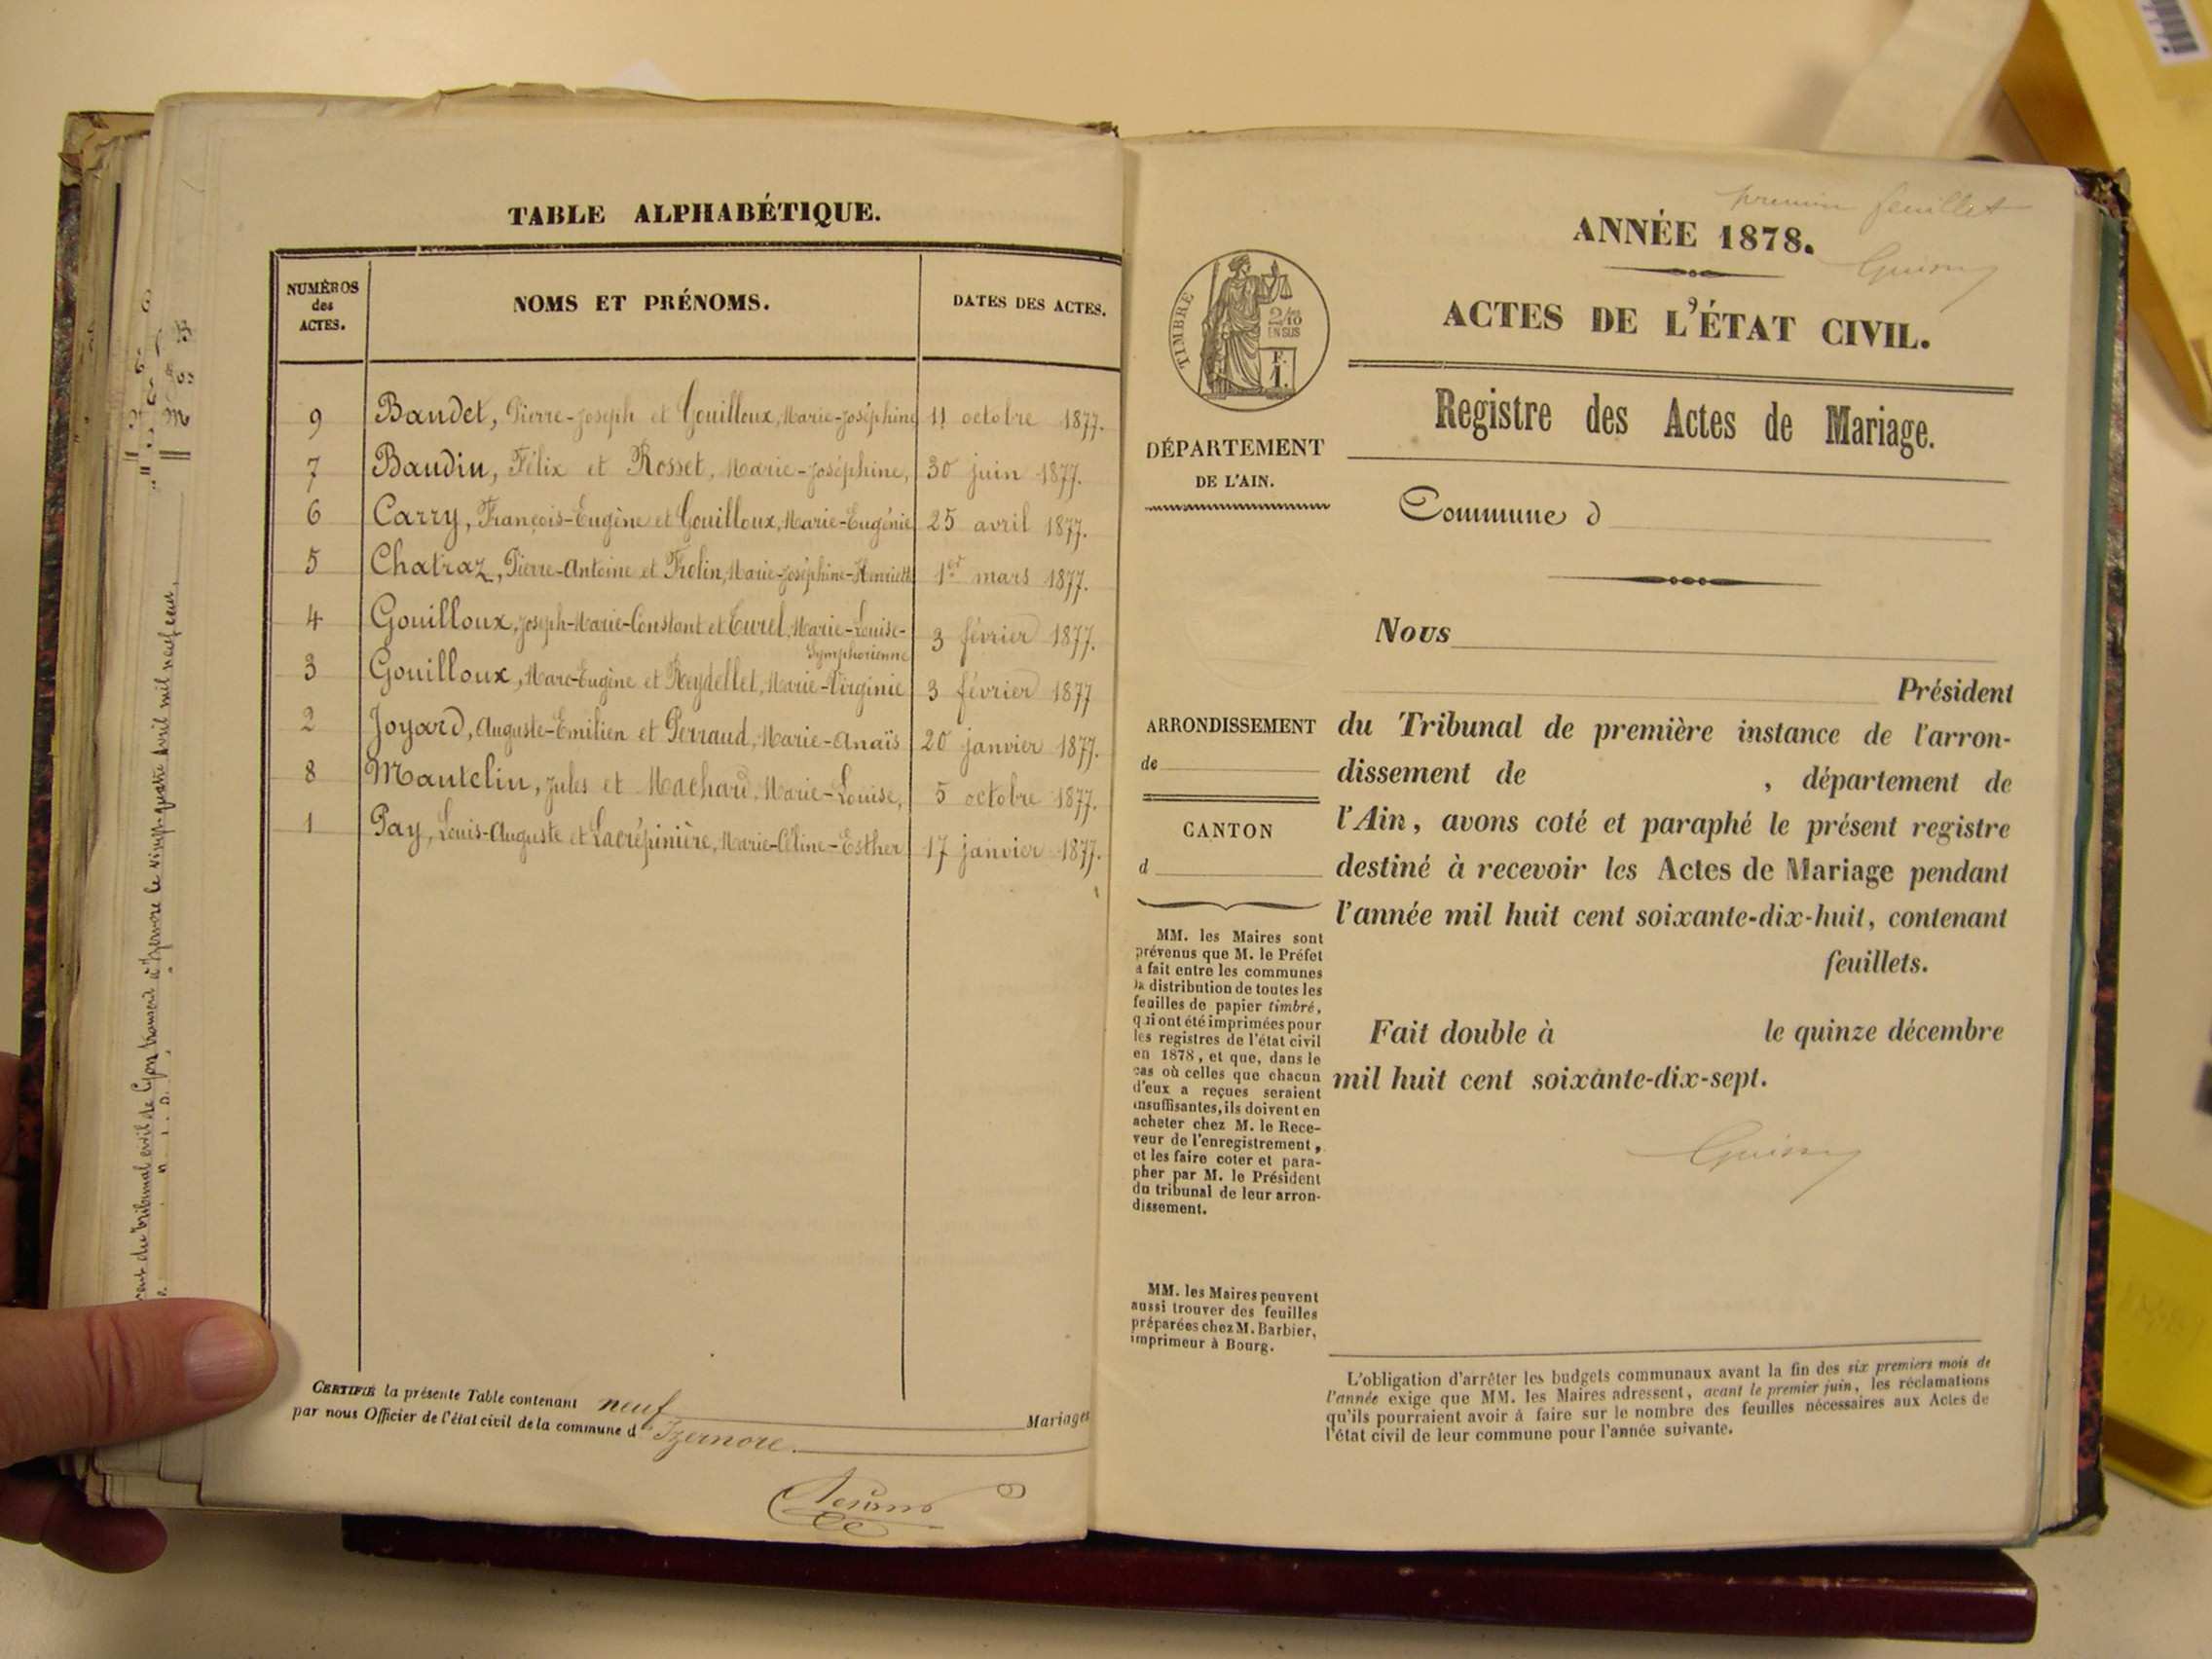 TABLE ALPHABÉTIQUE.
NUMÉROS
des
ACTES.
NOMS ET PRÉNOMS.
DATES DES ACTES.
9 Baudet, Pierre-Joseph et Gouilloux, Marie-Joséphine 11 octobre 1877.
7 Baudin, Félix et Rosset, Marie-Joséphine, 30 juin 1877.
6 Carry, François-Eugène et Gouilloux, Marie-Eugénie 25 avril 1877.
5 Chatraz, Pierre-Antoine et Frolin, Marie-Joséphine-Henriette 1er mars 1877.
4 Gouilloux, Joseph-Marie-Constant et Turel, Marie-Louise- 3 février 1877.
Symphorienne
3 Gouilloux, Marc-Eugène et Reydellet, Marie-Virginie 3 février 1877
2 Joyard, Auguste-Emilien et Perraud, Marie-Anaïs 20 janvier 1877.
8 Mantelin, Jules et Machard, Marie-Louise, 5 octobre 1877.
1 Pay, Louis-Auguste et Lacrépinière, Marie-Céline-Esther 17 janvier 1877.
CERTIFIÉ la présente Table contenant neuf Mariages
par nous Officier de l'état civil de la commune d'Izernore.
du tribunal civil de Lyon transcrit à Izernore le vingt-quatre avril mil neuf cent
premier feuillet
ANNÉE 1878.
ACTES DE L'ÉTAT CIVIL.
TIMBRE
2/10
EN SUS
F.
1.
Registre des Actes de Mariage.
DÉPARTEMENT
DE L'AIN.
Commune d
Nous
Président
ARRONDISSEMENT
de
CANTON
d
du Tribunal de première instance de l'arron-
dissement de , département de
l'Ain, avons coté et paraphé le présent registre
destiné à recevoir les Actes de Mariage pendant
l'année mil huit cent soixante-dix-huit, contenant
feuillets.
Fait double à le quinze décembre
mil huit cent soixante-dix-sept.
MM. les Maires sont
prévenus que M. le Préfet
a fait entre les communes
la distribution de toutes les
feuilles de papier timbré,
qui ont été imprimées pour
les registres de l'état civil
en 1878, et que, dans le
cas où celles que chacun
d'eux a reçues seraient
insuffisantes, ils doivent en
acheter chez M. le Rece-
veur de l'enregistrement,
et les faire coter et para-
pher par M. le Président
du tribunal de leur arron-
dissement.
MM. les Maires peuvent
aussi trouver des feuilles
préparées chez M. Barbier,
imprimeur à Bourg.
L'obligation d'arrêter les budgets communaux avant la fin des six premiers mois de
l'année exige que MM. les Maires adressent, avant le premier juin, les réclamations
qu'ils pourraient avoir à faire sur le nombre des feuilles nécessaires aux Actes de
l'état civil de leur commune pour l'année suivante.